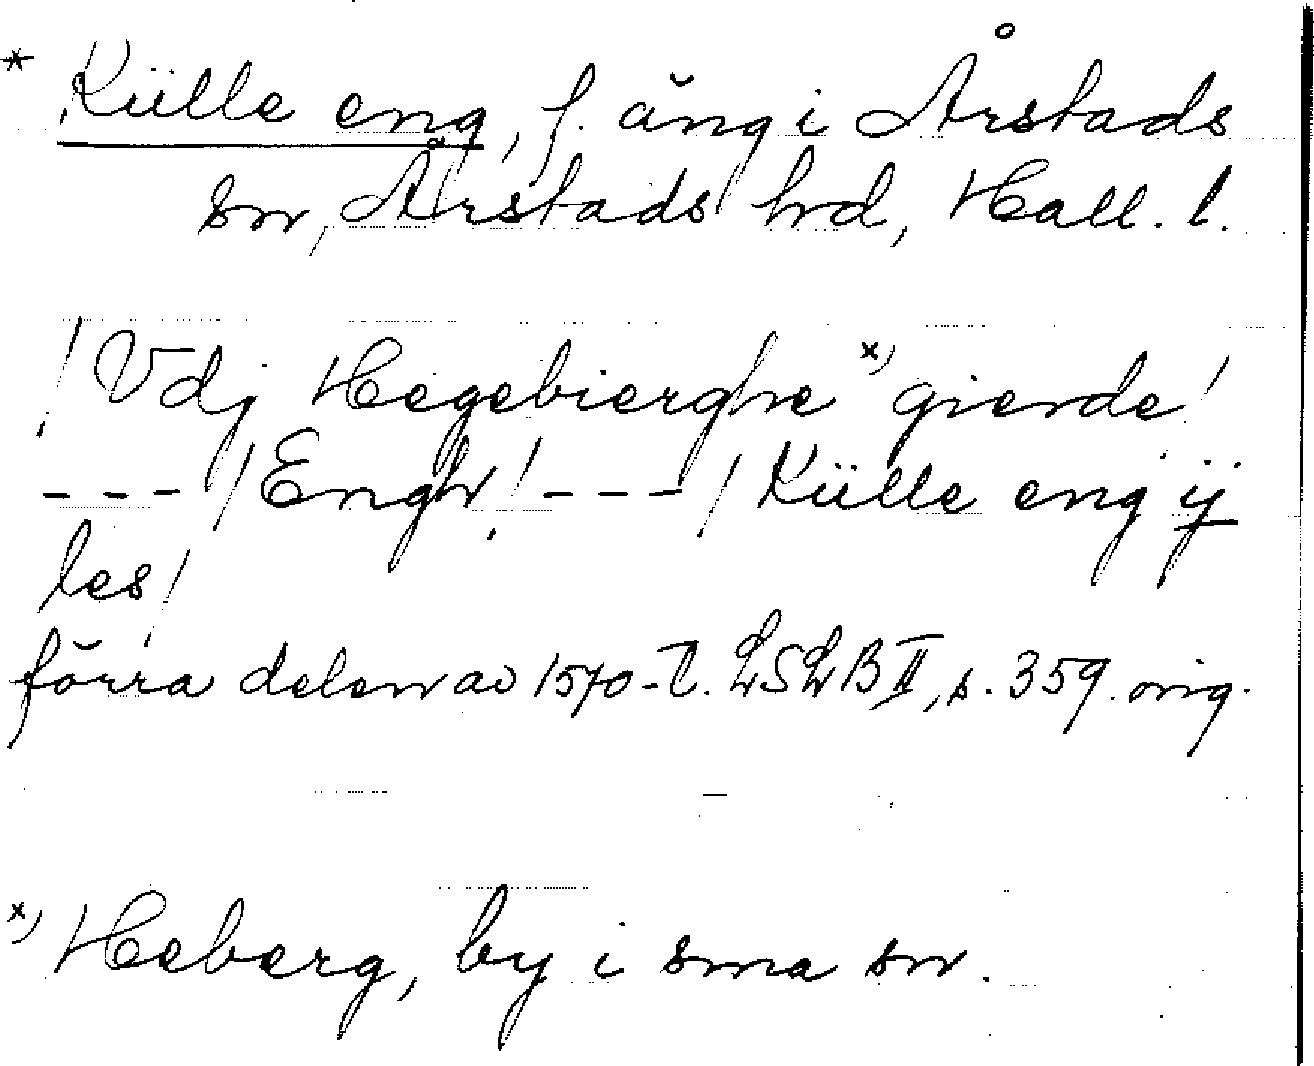 * Külle eng, f. äng i Årstads
sn, Årstads hrd, Hall. l.
/ Vdj Hegebierghe x) gierde /
--- / Engh / --- / Külle eng ij
les /
förra delen av 1570-t. LSLB II, s. 359. orig.
x) Heberg, by i sma sn.